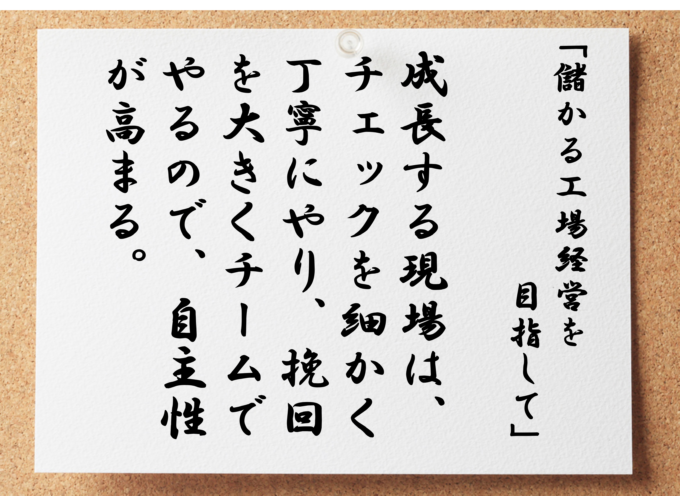 「儲かる工場経営を
目指して」
成長する現場は、
チェックを細かく
丁寧にやり、挽回
を大きくチームで
やるので、自主性
が高まる。